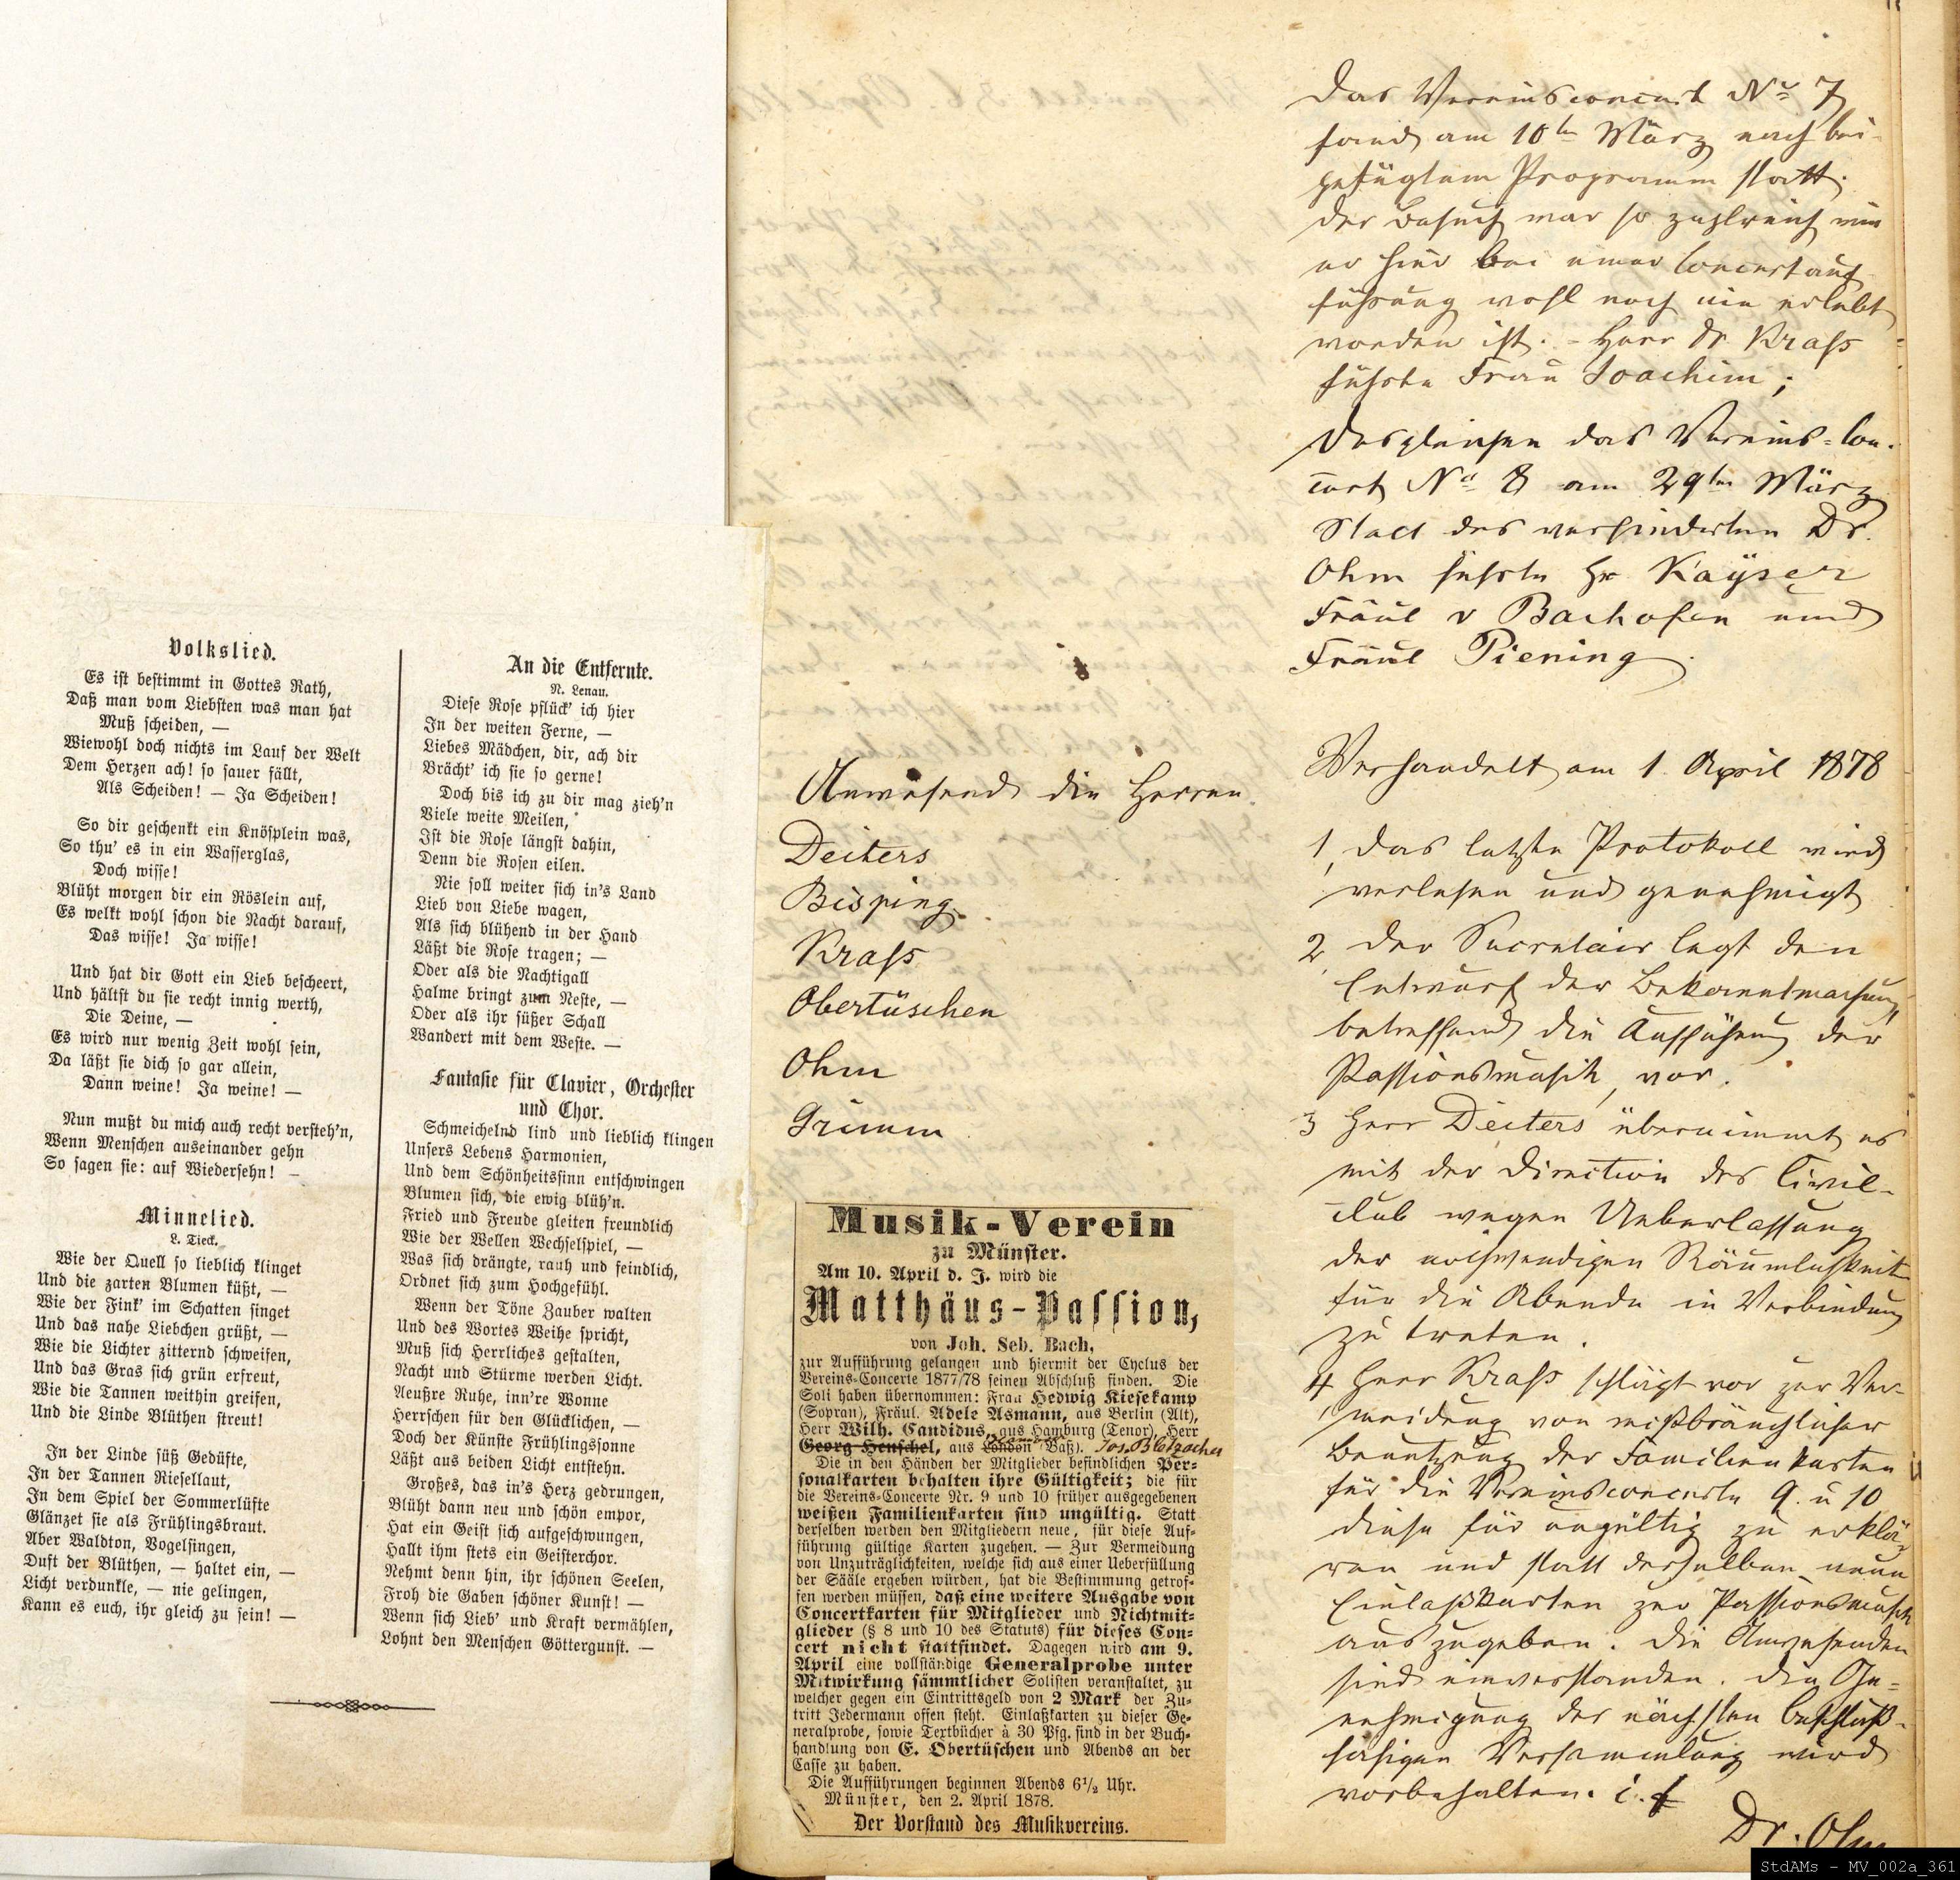 Volkslied.
Es ist bestimmt in Gottes Rath,
Daß man vom Liebsten was man hat
Muß scheiden, —
Wiewohl doch nichts im Lauf der Welt
Dem Herzen ach! so sauer fällt,
Als Scheiden! — Ja Scheiden!
So dir geschenkt ein Knösplein was,
So thu' es in ein Wasserglas,
Doch wisse!
Blüht morgen dir ein Röslein auf,
Es welkt wohl schon die Nacht darauf,
Das wisse! Ja wisse!
Und hat dir Gott ein Lieb bescheert,
Und hältst du sie recht innig werth,
Die Deine, —
Es wird nur wenig Zeit wohl sein,
Da läßt sie dich so gar allein,
Dann weine! Ja weine! —
Nun mußt du mich auch recht versteh'n,
Wenn Menschen auseinander gehn
So sagen sie: auf Wiedersehn! —
Minnelied.
L. Tieck.
Wie der Quell so lieblich klinget
Und die zarten Blumen küßt, —
Wie der Fink' im Schatten singet
Und das nahe Liebchen grüßt, —
Wie die Lichter zitternd schweifen,
Und das Gras sich grün erfreut,
Wie die Tannen weithin greifen,
Und die Linde Blüthen streut!
In der Linde süß Gedüfte,
In der Tannen Riesellaut,
In dem Spiel der Sommerlüfte
Glänzet sie als Frühlingsbraut.
Aber Waldton, Vogelsingen,
Duft der Blüthen, — haltet ein, —
Licht verdunkle, — nie gelingen,
Kann es euch, ihr gleich zu sein! —
An die Entfernte.
N. Lenau.
Diese Rose pflück' ich hier
In der weiten Ferne, —
Liebes Mädchen, dir, ach dir
Brächt' ich sie so gerne!
Doch bis ich zu dir mag zieh'n
Viele weite Meilen,
Ist die Rose längst dahin,
Denn die Rosen eilen.
Nie soll weiter sich in's Land
Lieb von Liebe wagen,
Als sich blühend in der Hand
Läßt die Rose tragen; —
Oder als die Nachtigall
Halme bringt zum Neste, —
Oder als ihr süßer Schall
Wandert mit dem Weste. —
Fantasie für Clavier, Orchester
und Chor.
Schmeichelnd lind und lieblich klingen
Unsers Lebens Harmonien,
Und dem Schönheitssinn entschwingen
Blumen sich, die ewig blüh'n.
Fried und Freude gleiten freundlich
Wie der Wellen Wechselspiel, —
Was sich drängte, rauh und feindlich,
Ordnet sich zum Hochgefühl.
Wenn der Töne Zauber walten
Und des Wortes Weihe spricht,
Muß sich Herrliches gestalten,
Nacht und Stürme werden Licht.
Aeußre Ruhe, inn're Wonne
Herrschen für den Glücklichen, —
Doch der Künste Frühlingssonne
Läßt aus beiden Licht entstehn.
Großes, das in's Herz gedrungen,
Blüht dann neu und schön empor,
Hat ein Geist sich aufgeschwungen,
Hallt ihm stets ein Geisterchor.
Nehmt denn hin, ihr schönen Seelen,
Froh die Gaben schöner Kunst! —
Wenn sich Lieb' und Kraft vermählen,
Lohnt den Menschen Göttergunst. —
Anwesend die Herren
Deiters
Bisping
Krass
Obertüschen
Ohm
Grimm
Musik-Verein
zu Münster.
Am 10. April d. J. wird die
Matthäus-Passion,
von Joh. Seb. Bach,
zur Aufführung gelangen und hiermit der Cyclus der
Vereins-Concerte 1877/78 seinen Abschluß finden. Die
Soli haben übernommen: Frau Hedwig Kiesekamp
(Sopran), Fräul. Adele Asmann, aus Berlin (Alt),
Herr Wilh. Candidus, aus Hamburg (Tenor), Herr
Georg Henschel, aus London (Baß). Jos. Bletzacher
Die in den Händen der Mitglieder befindlichen Per-
sonalkarten behalten ihre Gültigkeit; die für
die Vereins-Concerte Nr. 9 und 10 früher ausgegebenen
weißen Familienkarten sind ungültig. Statt
derselben werden den Mitgliedern neue, für diese Auf-
führung gültige Karten zugehen. — Zur Vermeidung
von Unzuträglichkeiten, welche sich aus einer Ueberfüllung
der Sääle ergeben würden, hat die Bestimmung getrof-
fen werden müssen, daß eine weitere Ausgabe von
Concertkarten für Mitglieder und Nichtmit-
glieder (§ 8 und 10 des Statuts) für dieses Con-
cert nicht stattfindet. Dagegen wird am 9.
April eine vollständige Generalprobe unter
Mitwirkung sämmtlicher Solisten veranstaltet, zu
welcher gegen ein Eintrittsgeld von 2 Mark der Zu-
tritt Jedermann offen steht. Einlaßkarten zu dieser Ge-
neralprobe, sowie Textbücher à 30 Pfg. sind in der Buch-
handlung von E. Obertüschen und Abends an der
Casse zu haben.
Die Aufführungen beginnen Abends 6½ Uhr.
Münster, den 2. April 1878.
Der Vorstand des Musikvereins.
Das Vereinsconcert No 7
fand am 10ten März nach bei-
gefügtem Programm statt.
Der Besuch war so zahlreich wie
er hier bei einer Concertauf-
führung wohl noch nie erlebt
worden ist. - Herr Dr Krass
führte Frau Joachim;
desgleichen das Vereins-Con-
cert No 8 am 29ten März
Statt des verhinderten Dr.
Ohm führte Hr Kayser
Fräul v Bachofen und
Fräul Piening.
Verhandelt am 1. April 1878
1, Das letzte Protokoll wird
verlesen und genehmigt
2, Der Secretair legt den
Entwurf der Bekanntmachung
betreffend die Aufführung der
Passionsmusik, vor.
3 Herr Deiters übernimmt es
mit der Direction des Civil-
club wegen Ueberlassung
der nothwendigen Räumlichkeit
für die Abende in Verbindung
zu treten.
4, Herr Krass schlägt vor zur Ver-
meidung von mißbräuchlicher
Benutzung der Familienkarten
für die Vereinsconcerte 9. u 10
diese für ungültig zu erklä-
ren und statt derselben neue
Einlaßkarten zur Passionsmusik
auszugeben. Die Anwesenden
sind einverstanden. Die Ge-
nehmigung der nächsten beschluß-
fähigen Versammlung wird
vorbehalten.
Dr. Ohm
StdAMs - MV_002a_361